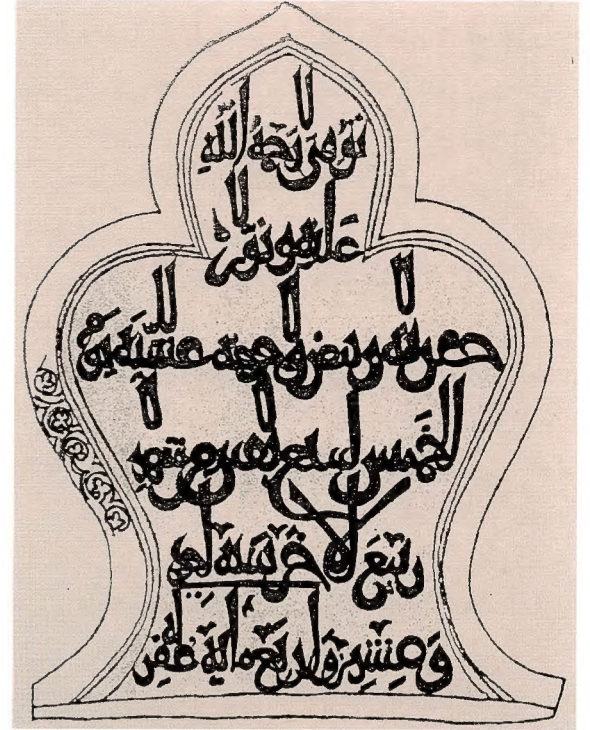 توفى رحمة الله
عليه ونور
حفرته ونضر وجهه عشية يوم
الخميس لسبع بقين من شهر
ربيع الاخر سنة
وعشرين واربع ماية